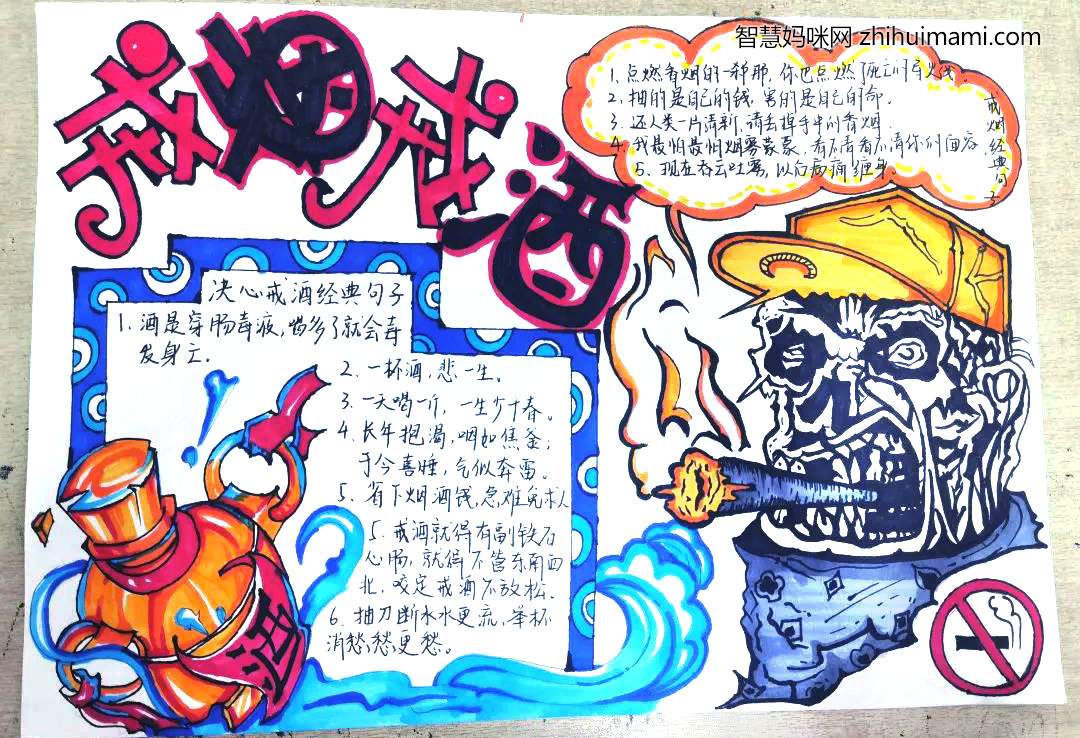 智慧妈咪网 zhihuimami.com
戒烟戒酒
1. 点燃香烟的一刹那，你也点燃
2. 抽的是自己的钱，害的是自己的命。
3. 还人类一片清新，请丢掉手中的香烟
4. 我最怕最怕烟雾袅袅，看不清看不清你们面容
5. 现在吞云吐雾，以后病痛缠身。
戒烟经典句子
决心戒酒经典句子
1. 酒是穿肠毒液，喝多了就会毒
发身亡.
2. 一杯酒，悲一生。
3. 一天喝一斤，一生少十春。
4. 长年抱渴，咽如焦釜；
于今喜睡，气似奔雷。
5. 省下烟酒钱，急难免求人
5. 戒酒就得有副铁石
心肠，就得不管东南西
北，咬定戒酒不放松。
6. 抽刀断水水更流，举杯
消愁愁更愁。
酒